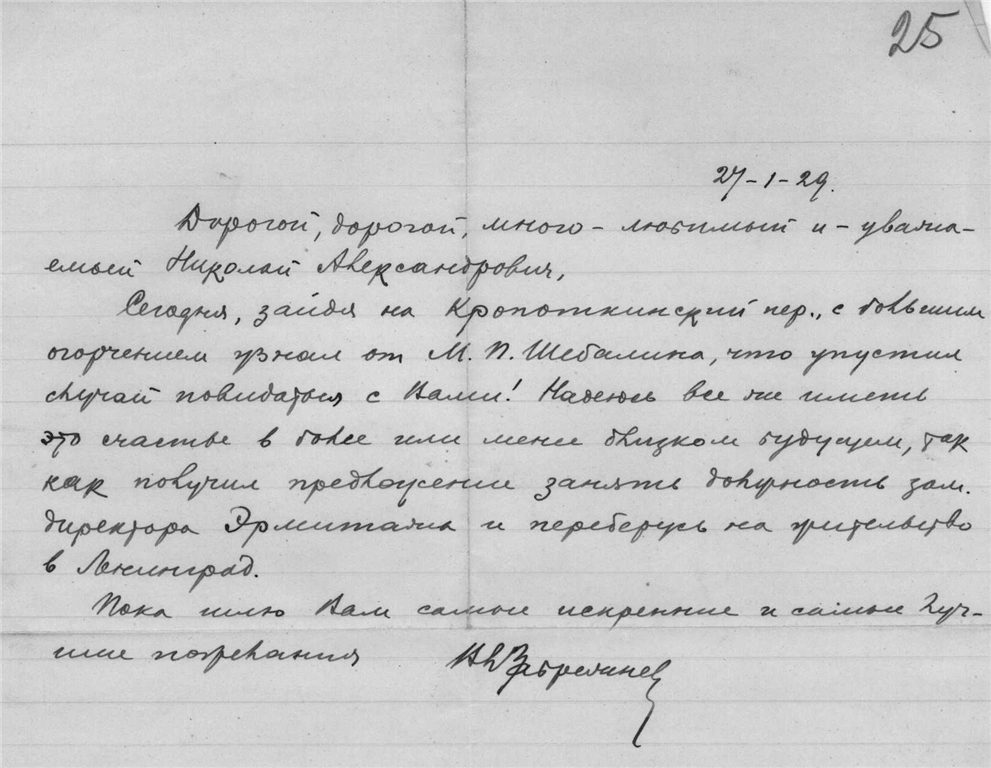 25
27-1-29.
Дорогой, дорогой, много-любимый и-уважа-
емый Николай Александрович,
Сегодня, зайдя на Кропоткинский пер., с большим
огорчением узнал от М. П. Шебалина, что упустил
случай повидаться с Вами! Надеюсь все же иметь
это счастье в более или менее близком будущем, так
как получил предложение занять должность зам.
директора Эрмитажа и переберусь на жительство
в Ленинград.
Пока шлю Вам самые искренние и самые луч-
шие пожелания